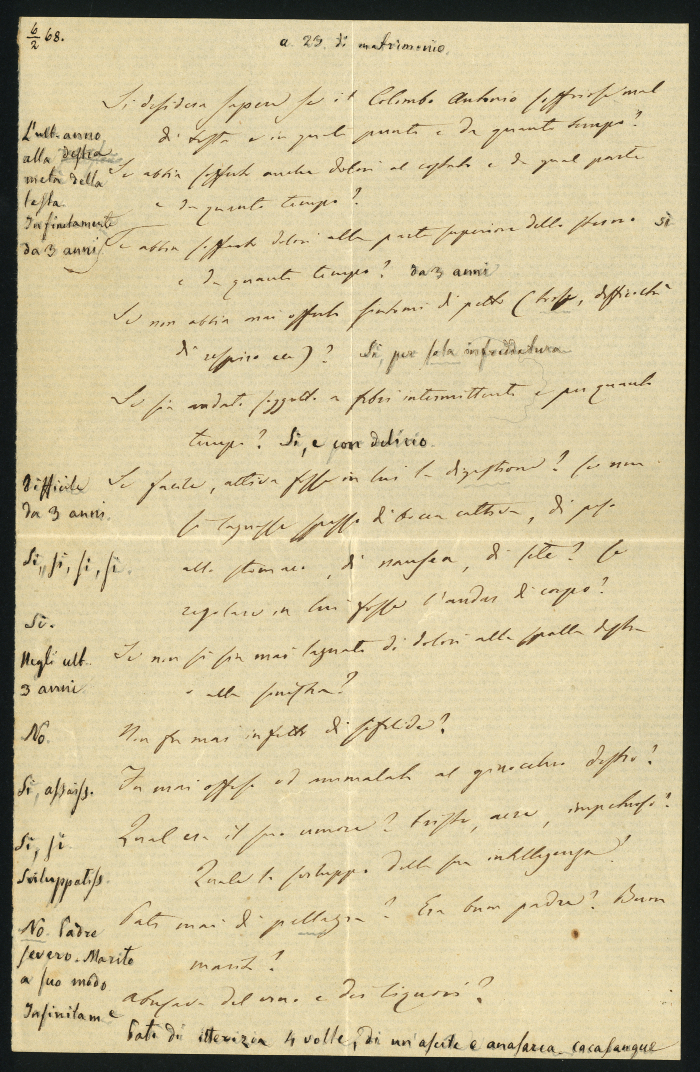 6/2 68.
a. 29. di matrimonio.
Si desidera sapere se il Colombo Antonio soffrisse mal
di testa e in quale punto e da quanto tempo?
L'ult. anno
alla destra
metà della
testa.
Infinitamente
da 3 anni
Se abbia sofferto anche dolori al costato e da qual parte
e da quanto tempo?
Se abbia sofferto dolori alla parte superiore dello sterno sì
e da quanto tempo? da 3 anni
Se non abbia mai offerto sintomi di petto (tosse, difficoltà
di respiro ecc)? Sì, per sola infreddatura
Se sia andato soggetto a febbri intermittenti e per quanto
tempo? Sì, e con delirio.
Difficile
da 3 anni.
Se facile, attiva fosse in lui la digestione? Se non
si lagnasse spesso di bocca cattiva, di peso
Sì, sì, sì, sì.
allo stomaco, di nausea, di sete? Se
Sì.
regolare in lui fosse l'andar di corpo?
Negli ult.
3 anni
Se non si sia mai lagnato di dolori alla spalla destra
o alla sinistra?
No.
Non fu mai infetto di sifilide?
Sì, assaiss.
Fu mai offeso od ammalato al ginocchio destro?
Sì, sì
Qual era il suo umore? triste, acre, impetuoso?
Sviluppatiss.
Quale lo sviluppo della sua intelligenza?
No. Padre
severo. Marito
a suo modo
Patì mai di pellagra? Era buon padre? Buon
marito?
Infinitame
Abusava del vino e dei liquori?
Patì di itterizia 4 volte, di un'ascite e anasarca. cacasangue